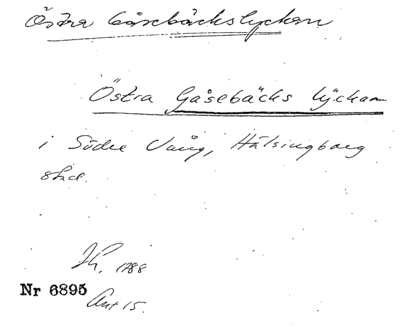 Östra Gåsebäckslyckan
Östra Gåsebäcks lyckan
i Södra Vång, Hälsingborg
stad.
Nr 6895 1788
Akt 15.